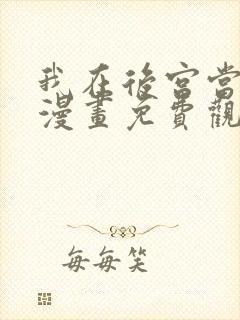 我在後宮當
漫畫免費觀
每每笑